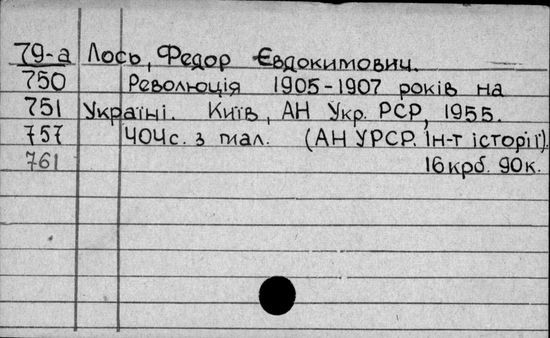 79-а Лось, Федор Євдокимович.
750 Революція 1905-1907 років на
751 Україні. Київ, АН Укр. РСР, 1955.
757 404с. з мал. (АН УРСР. Ін-т історії).
761 16крб. 90к.